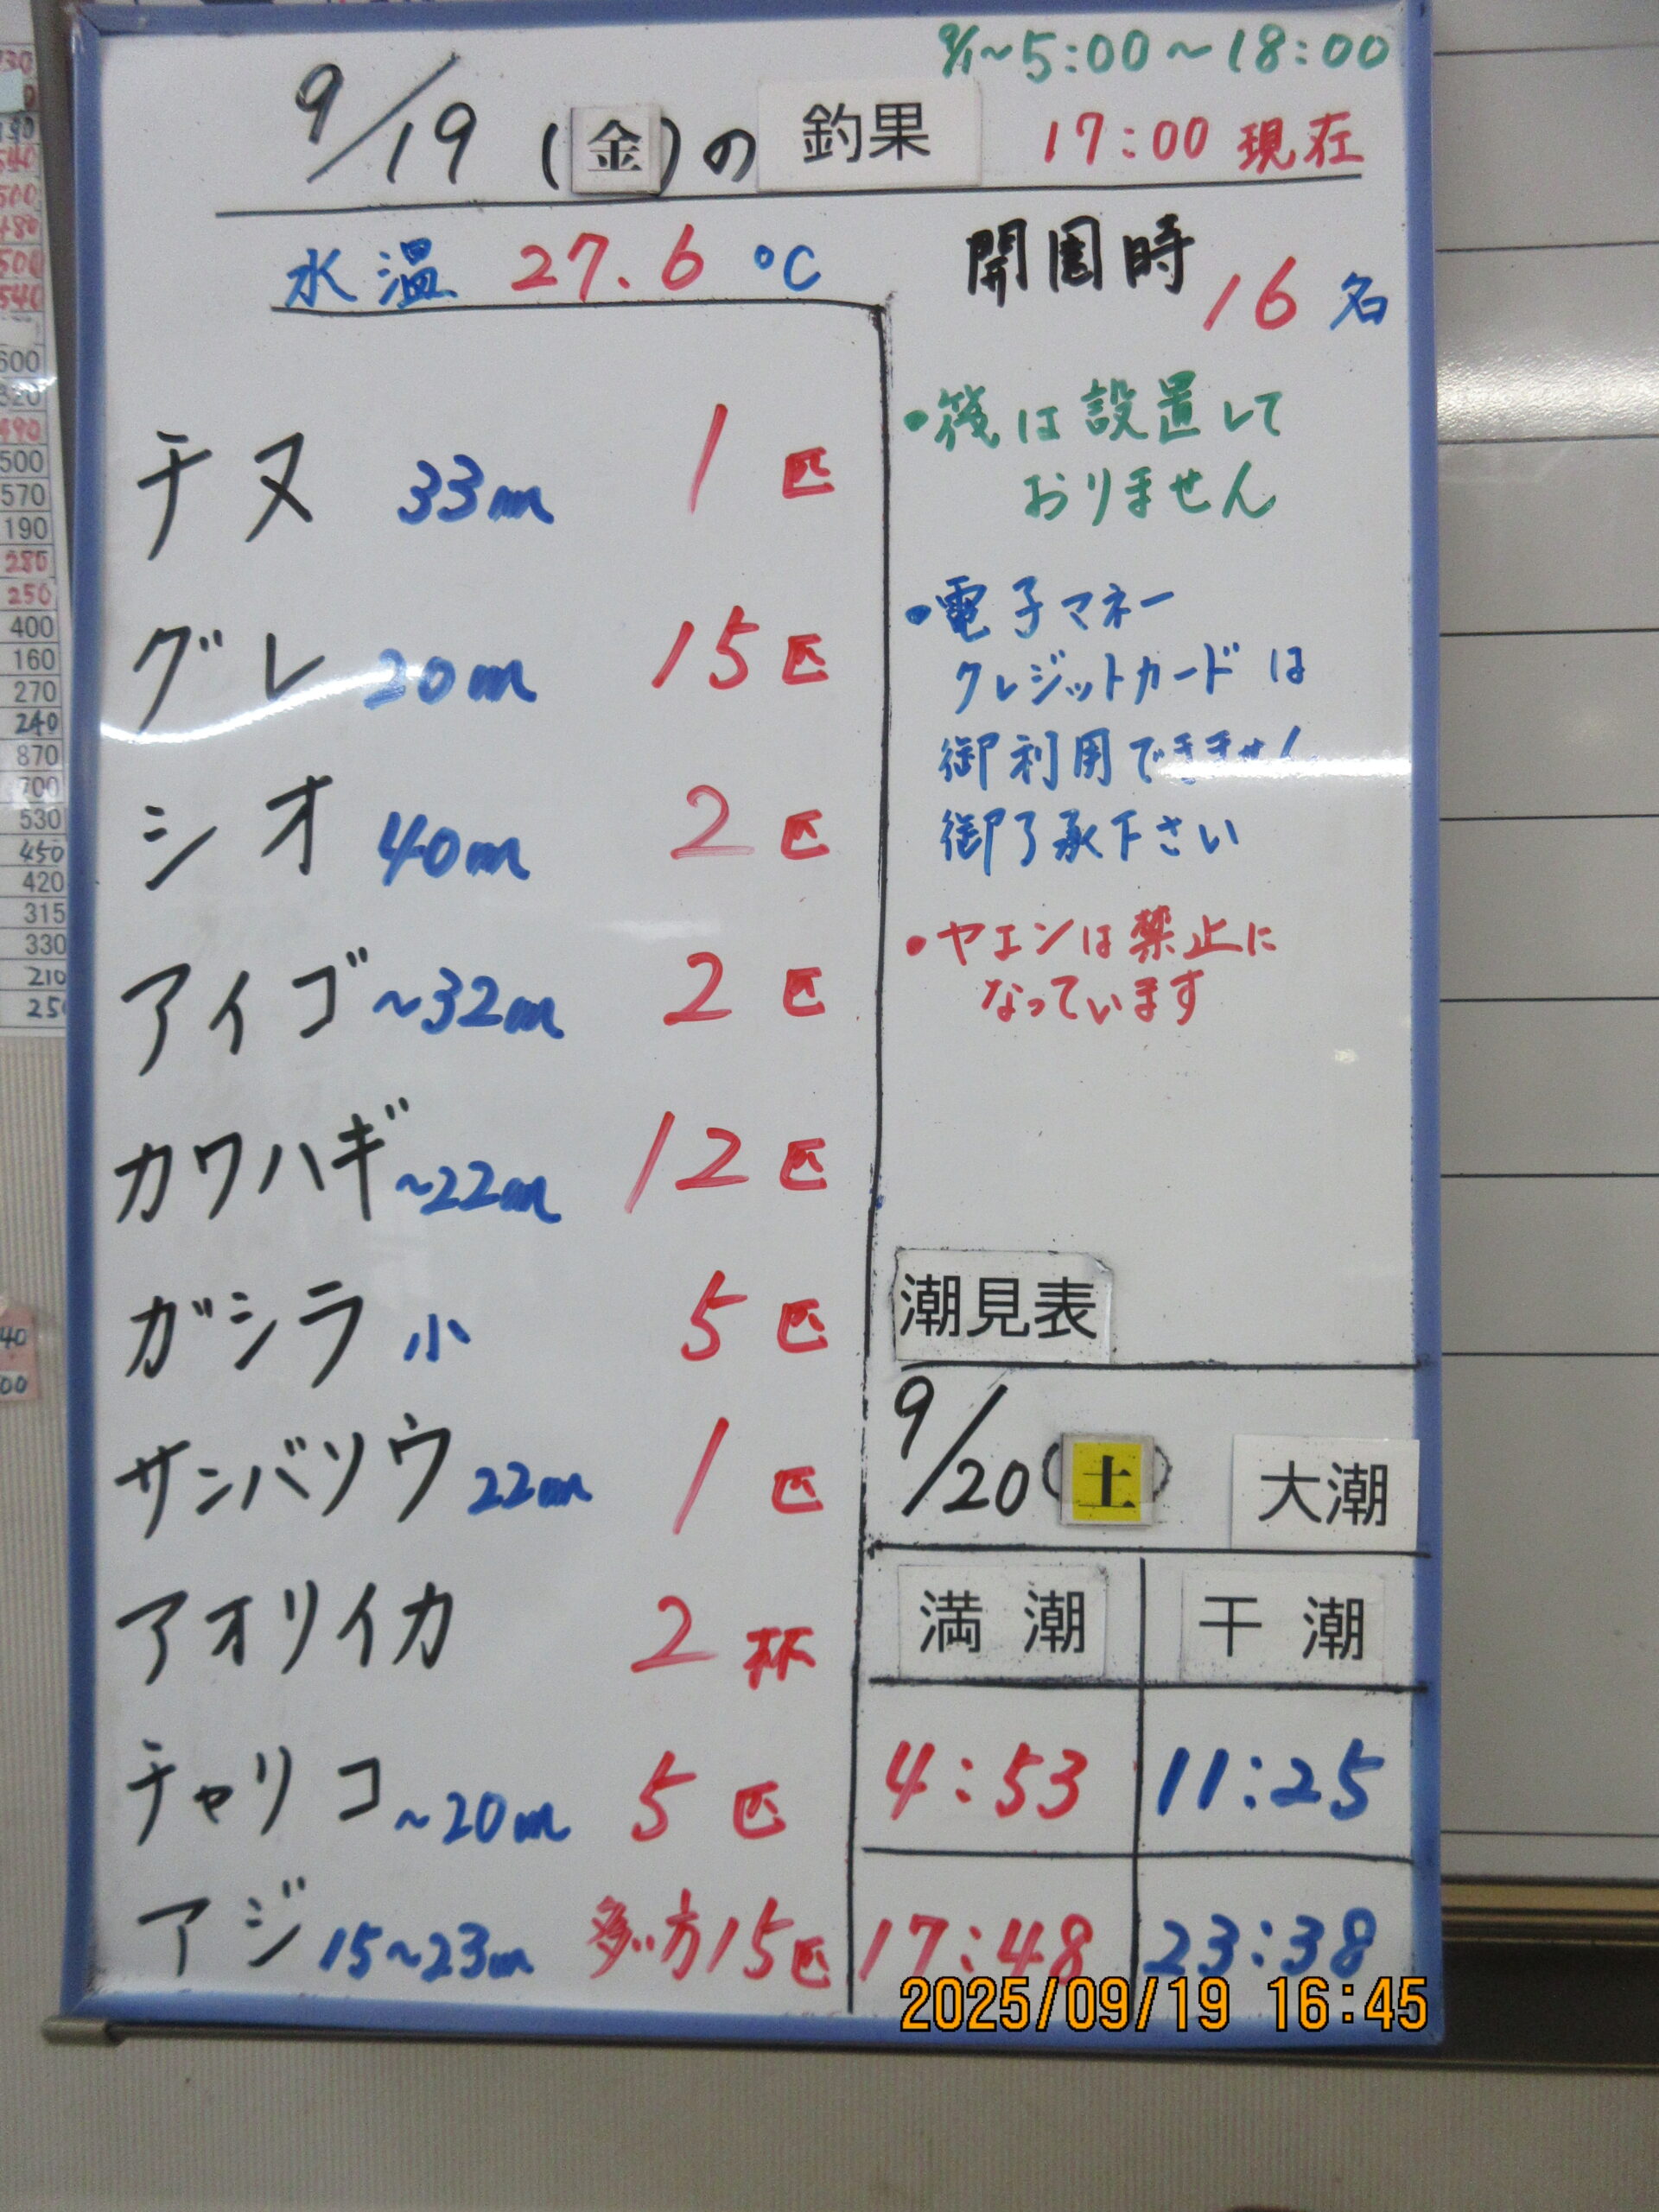 9/1~5:00~18:00
9/19(金)の 釣果 17:00 現在
水温 27.6 ℃
開園時 16 名
チヌ 33cm 1 匹
グレ 20cm 15 匹
シオ 40cm 2 匹
アイゴ ~32cm 2 匹
カワハギ ~22cm 12 匹
ガシラ 小 5 匹
サンバソウ 22cm 1 匹
アオリイカ 2 杯
チャリコ ~20cm 5 匹
アジ 15~23cm 多い方15匹
・筏は設置して
おりません
・電子マネー
クレジットカードは
御利用できません
御了承下さい
・ヤエンは禁止に
なっています
潮見表
9/20(土) 大潮
満潮 干潮
4:53 11:25
17:48 23:38
2025/09/19 16:45
730
190
540
500
480
500
540
600
320
490
500
570
190
280
250
400
160
270
240
870
700
530
450
420
315
330
210